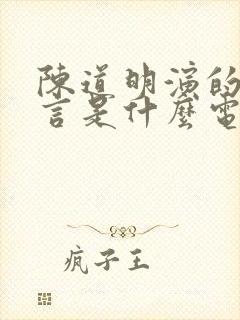 陳道明演的
言是什麼電
瘋子王